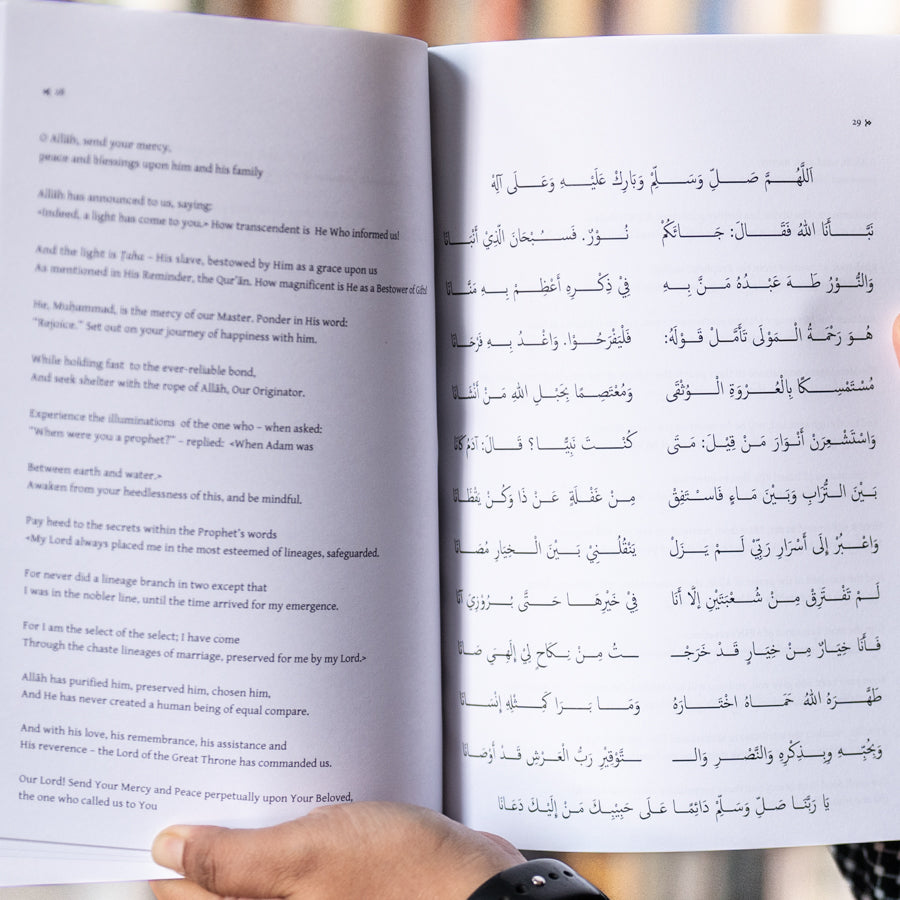 28
O Allāh, send your mercy,
peace and blessings upon him and his family
Allāh has announced to us, saying:
<Indeed, a light has come to you.> How transcendent is He Who informed us!
And the light is Ṭaha – His slave, bestowed by Him as a grace upon us
As mentioned in His Reminder, the Qur'ān. How magnificent is He as a Bestower of Gifts!
He, Muḥammad, is the mercy of our Master. Ponder in His word:
"Rejoice." Set out on your journey of happiness with him.
While holding fast to the ever-reliable bond,
And seek shelter with the rope of Allāh, Our Originator.
Experience the illuminations of the one who – when asked:
"When were you a prophet?" – replied: <When Adam was
Between earth and water.>
Awaken from your heedlessness of this, and be mindful.
Pay heed to the secrets within the Prophet's words
<My Lord always placed me in the most esteemed of lineages, safeguarded.
For never did a lineage branch in two except that
I was in the nobler line, until the time arrived for my emergence.
For I am the select of the select; I have come
Through the chaste lineages of marriage, preserved for me by my Lord.>
Allāh has purified him, preserved him, chosen him,
And He has never created a human being of equal compare.
And with his love, his remembrance, his assistance and
His reverence – the Lord of the Great Throne has commanded us.
Our Lord! Send Your Mercy and Peace perpetually upon Your Beloved,
the one who called us to You
29
اَللَّهُمَّ صَلِّ وَسَلِّمْ وَبَارِكْ عَلَيْهِ وَعَلَى آلِهْ
نَبَّأَنَا اللهُ فَقَالَ: جَائَكُمْ نُوْرٌ. فَسُبْحَانَ الَّذِيْ أَنْبَانَا
وَالنُّوْرُ طَهَ عَبْدُهُ مَنَّ بِهِ فِيْ ذِكْرِهِ أَعْظِمْ بِهِ مَنَّانَا
هُوَ رَحْمَةُ الْمَوْلَى تَأَمَّلْ قَوْلَهُ: فَلْيَفْرَحُوْا. وَاغْدُ بِهِ فَرْحَانَا
مُسْتَمْسِكًا بِالْعُرْوَةِ الْوُثْقَى وَمُعْتَصِمًا بِحَبْلِ اللهِ مَنْ أَنْشَانَا
وَاسْتَشْعِرَنْ أَنْوَارَ مَنْ قِيْلَ: مَتَى كُنْتَ نَبِيًّا؟ قَالَ: آدَمُ كَانَا
بَيْنَ التُّرَابِ وَبَيْنَ مَاءٍ فَاسْتَفِقْ مِنْ غَفْلَةٍ عَنْ ذَا وَكُنْ يَقْظَانَا
وَاعْبُرْ إِلَى أَسْرَارِ رَبِّيْ لَمْ يَزَلْ يَنْقُلُنِيْ بَيْنَ الْخِيَارِ مُصَانَا
لَمْ تَفْتَرِقْ مِنْ شُعْبَتَيْنِ إِلَّا أَنَا فِيْ خَيْرِهَا حَتَّى بُرُوْزِيَ آنَا
فَأَنَا خِيَارٌ مِنْ خِيَارٍ قَدْ خَرَجْـ ـتُ مِنْ نِكَاحٍ لِيْ إِلَهِيَ صَانَا
طَهَّرَهُ اللهُ حَمَاهُ اخْتَارَهُ وَمَا بَرَا كَمِثْلِهِ إِنْسَانَا
وَبِحُبِّهِ وَبِذِكْرِهِ وَالنَّصْرِ وَالـ ـتَّوْقِيْرِ رَبُّ الْعَرْشِ قَدْ أَوْصَانَا
يَا رَبَّنَا صَلِّ وَسَلِّمْ دَائِمًا عَلَى حَبِيْبِكَ مَنْ إِلَيْكَ دَعَانَا